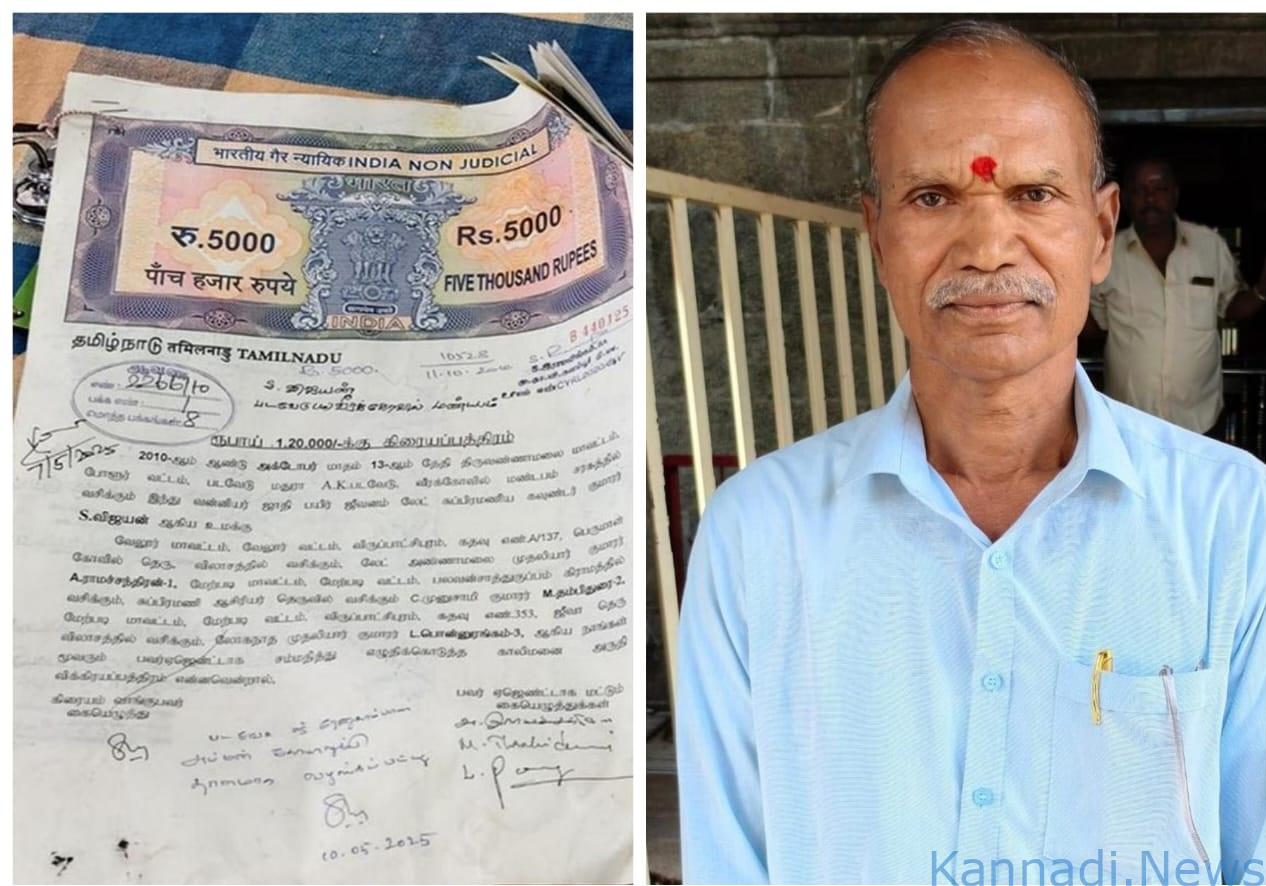 भारतीय गैर न्यायिक INDIA NON JUDICIAL
भारत
रु.5000
Rs.5000
पाँच हजार रुपये
FIVE THOUSAND RUPEES
INDIA
தமிழ்நாடு तमिलनाडु TAMILNADU
B 440125
Rs. 5000.
10528
11-10-2010
எண் : 2266/10
பக்க எண் : 1
மொத்த பக்கங்கள் : 8
7/5/2025
ரூபாய் 1,20,000/-க்கு கிரையப்பத்திரம்
2010-ஆம் ஆண்டு அக்டோபர் மாதம் 13-ஆம் தேதி திருவண்ணாமலை மாவட்டம்,
போளூர் வட்டம், படவேடு மதுரா A.K.படவேடு, வீரக்கோவில் மண்டபம் சரகத்தில்
வசிக்கும் இந்து வன்னியர் ஜாதி பயிர் ஜீவனம் லேட் சுப்பிரமணிய கவுண்டர் குமாரர்
S.விஜயன் ஆகிய உமக்கு
வேலூர் மாவட்டம், வேலூர் வட்டம், விருப்பாட்சிபுரம், கதவு எண்.A/137, பெருமாள்
கோவில் தெரு, விலாசத்தில் வசிக்கும், லேட் அண்ணாமலை முதலியார் குமாரர்
A.ராமச்சந்திரன்-1, மேற்படி மாவட்டம், மேற்படி வட்டம், பலவன்சாத்துகுப்பம் கிராமத்தில்
வசிக்கும், சுப்பிரமணி ஆசிரியர் தெருவில் வசிக்கும் C.முனுசாமி குமாரர் M.தம்பிதுரை-2,
மேற்படி மாவட்டம், மேற்படி வட்டம், விருப்பாட்சிபுரம், கதவு எண்.353, ஜீவா தெரு
விலாசத்தில் வசிக்கும், லோகநாத முதலியார் குமாரர் L.பொன்னுரங்கம்-3, ஆகிய நாங்கள்
மூவரும் பவர்ஏஜெண்டாக சம்மதித்து எழுதிக்கொடுத்த காலிமனை அருதி
விக்கிரயப்பத்திரம் என்னவென்றால்,
கிரையம் வாங்குபவர்
கையெழுத்து
பவர் ஏஜெண்டாக மட்டும்
கையெழுத்துக்கள்
அம்மன்
தானமாக
10.05.2025
Kannadi.News